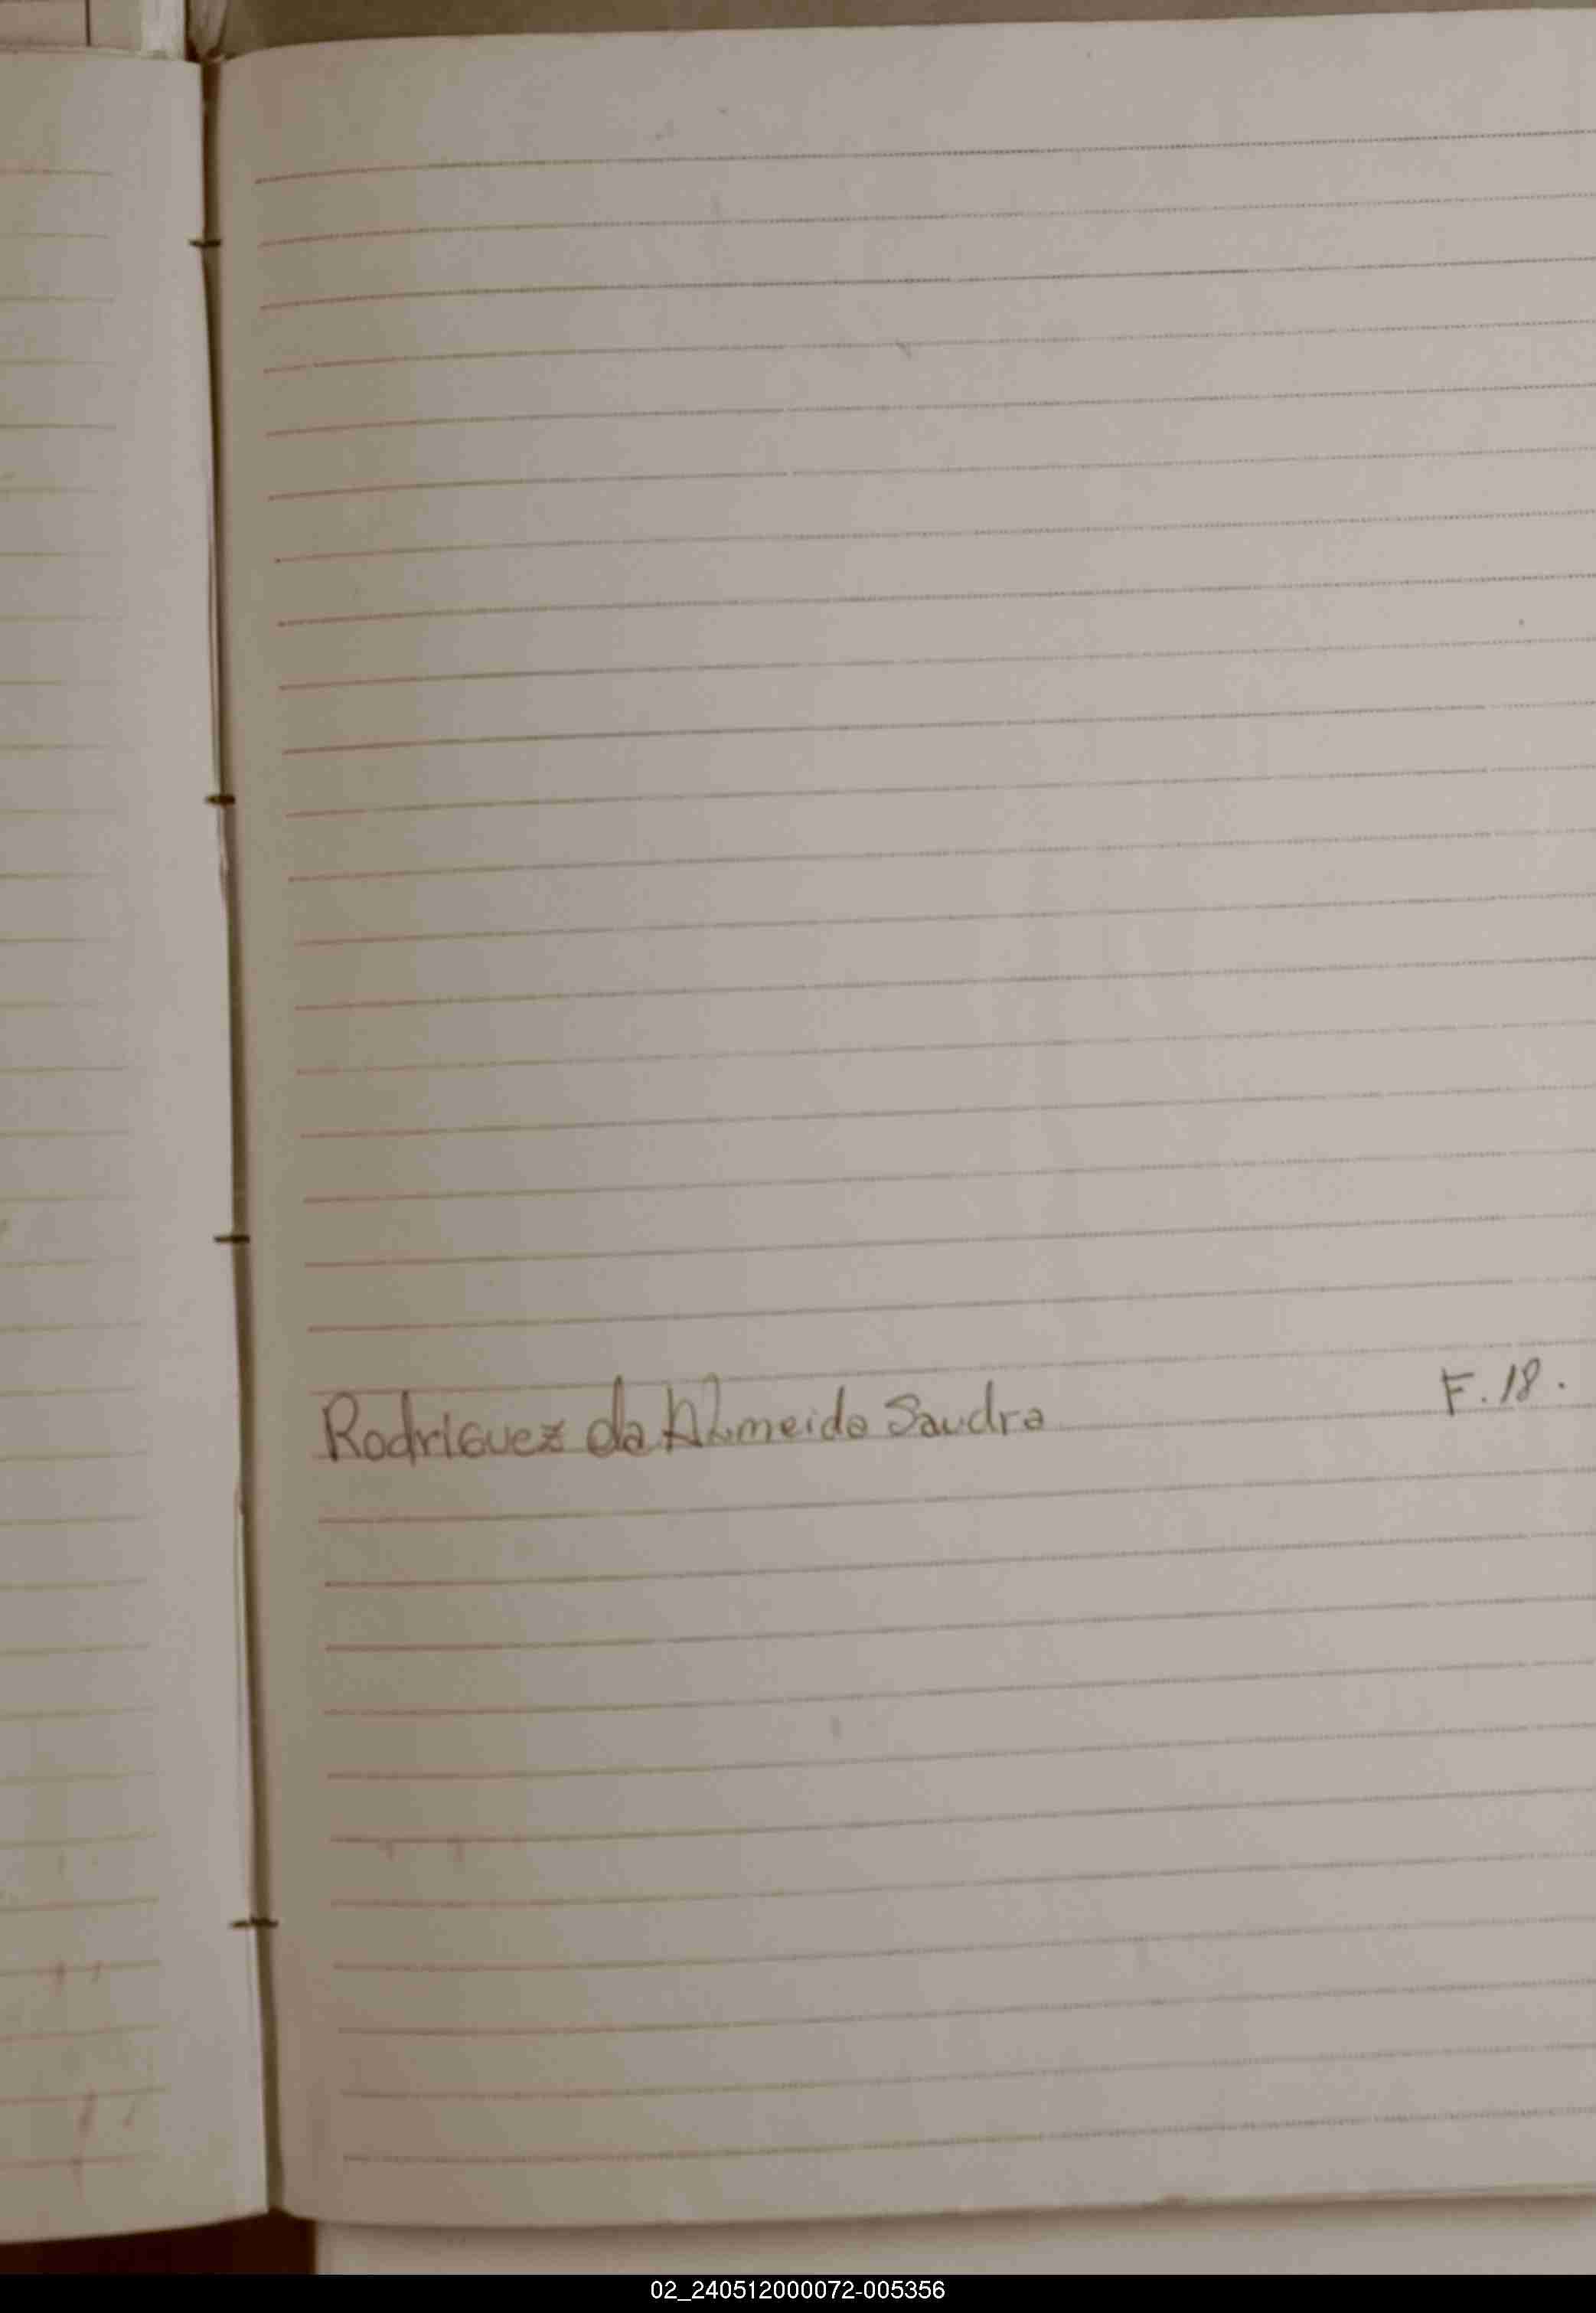 Rodriguez da Almeida Sandra F. 18.
02_240512000072-005356